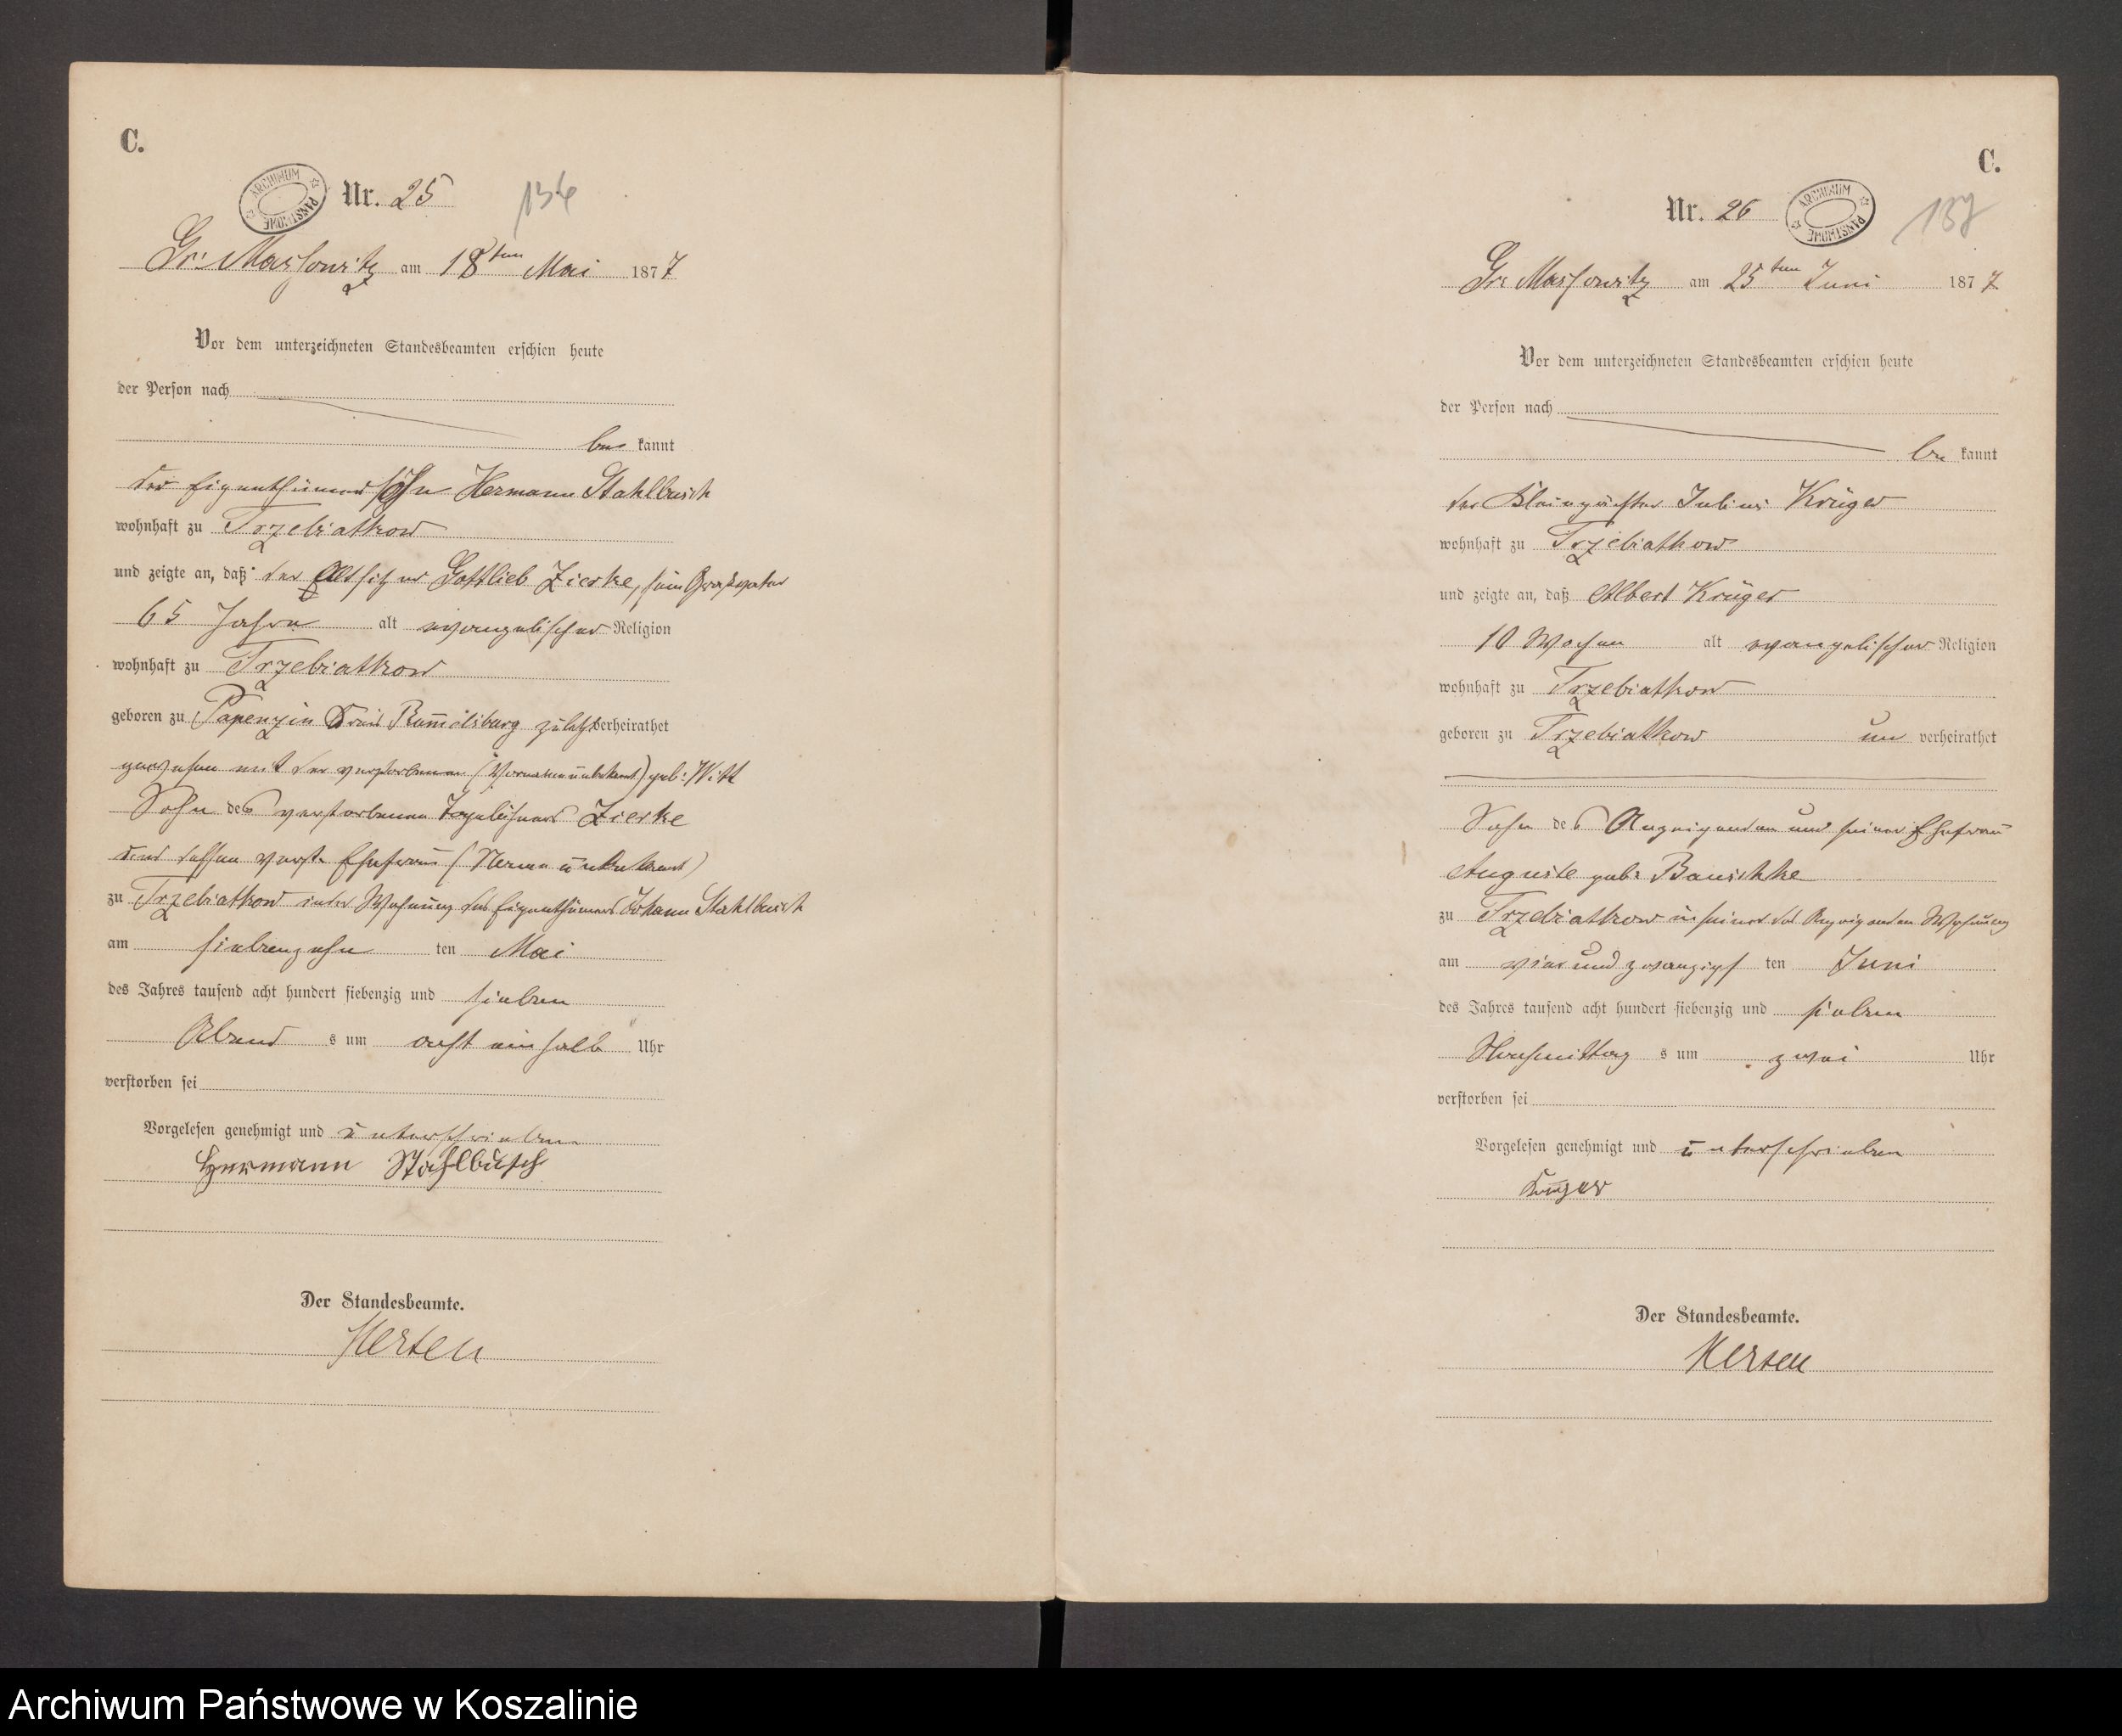 C.
ARCHIWUM PAŃSTWOWE
Nr. 25 136
Gr: Massowitz am 18ten Mai 1877
Vor dem unterzeichneten Standesbeamten erschien heute
der Person nach
be kannt
der Eigenthümersohn Hermann Stahlbusch
wohnhaft zu Trzebiatkow
und zeigte an, daß der Altsitzer Gottlieb Zierke, sein Großvater
65 Jahre alt evangelischer Religion
wohnhaft zu Trzebiatkow
geboren zu Papenzin Kreis Rummelsburg zuletzt verheirathet
gewesen mit der verstorbenen (Vorname unbekannt) geb: Witt
Sohn des verstorbenen Tagelöhners Zierke
und dessen verst. Ehefrau (Name unbekannt)
zu Trzebiatkow in der Wohnung des Eigenthümers Johann Stahlbusch
am siebenzehn ten Mai
des Jahres tausend acht hundert siebenzig und sieben
Abend s um acht ein halb Uhr
verstorben sei
Vorgelesen genehmigt und unterschrieben
Hermann Stahlbusch
Der Standesbeamte.
Mersen
C.
Nr. 26 ARCHIWUM PAŃSTWOWE 137
Gr: Massowitz am 25ten Juni 1877
Vor dem unterzeichneten Standesbeamten erschien heute
der Person nach
be kannt
der Kleinpächter Julius Krüger
wohnhaft zu Trzebiatkow
und zeigte an, daß Albert Krüger
10 Wochen alt evangelischer Religion
wohnhaft zu Trzebiatkow
geboren zu Trzebiatkow un verheirathet
Sohn des Anzeigenden und seiner Ehefrau
Auguste geb: Bauschke
zu Trzebiatkow in seiner des Anzeigenden Wohnung
am vier und zwanzigst ten Juni
des Jahres tausend acht hundert siebenzig und sieben
Nachmittag s um zwei Uhr
verstorben sei
Vorgelesen genehmigt und unterschrieben
Krüger
Der Standesbeamte.
Mersen
Archiwum Państwowe w Koszalinie